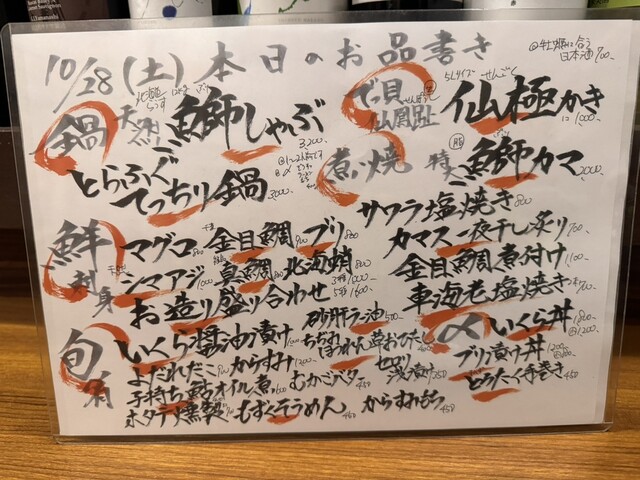 10/28(土)本日のお品書き
@牡蠣に合う
日本酒 700-
鍋
天然鰤しゃぶ
3,200
とらふぐ
てっちり鍋
3000
でっ貝
仙鳳趾
仙極かき
1000
煮・焼
特大鰤カマ
2000
サワラ塩焼き 800
カマス一夜干し炙り 700
金目鯛煮付け 1,100
車海老塩焼き
鮮 刺身
マグロ
金目鯛 900
ブリ 800
シマアジ 1000
真鯛 800
北海蛸 800
お造り盛り合わせ
3種 1000
5種 1600
旬肴
いくら醤油漬け
砂肝ラー油 500
よだれたこ
からすみ 1200
ちぢみほうれん草おひたし
子持ち鮎オイル煮
むかごバター 450
セロリ浅漬け 350
ホタテ燻製
もずくそうめん 450
からすみもち 450
〆
いくら丼 1800
ブリ漬け丼 1200
とろたく手巻き 450